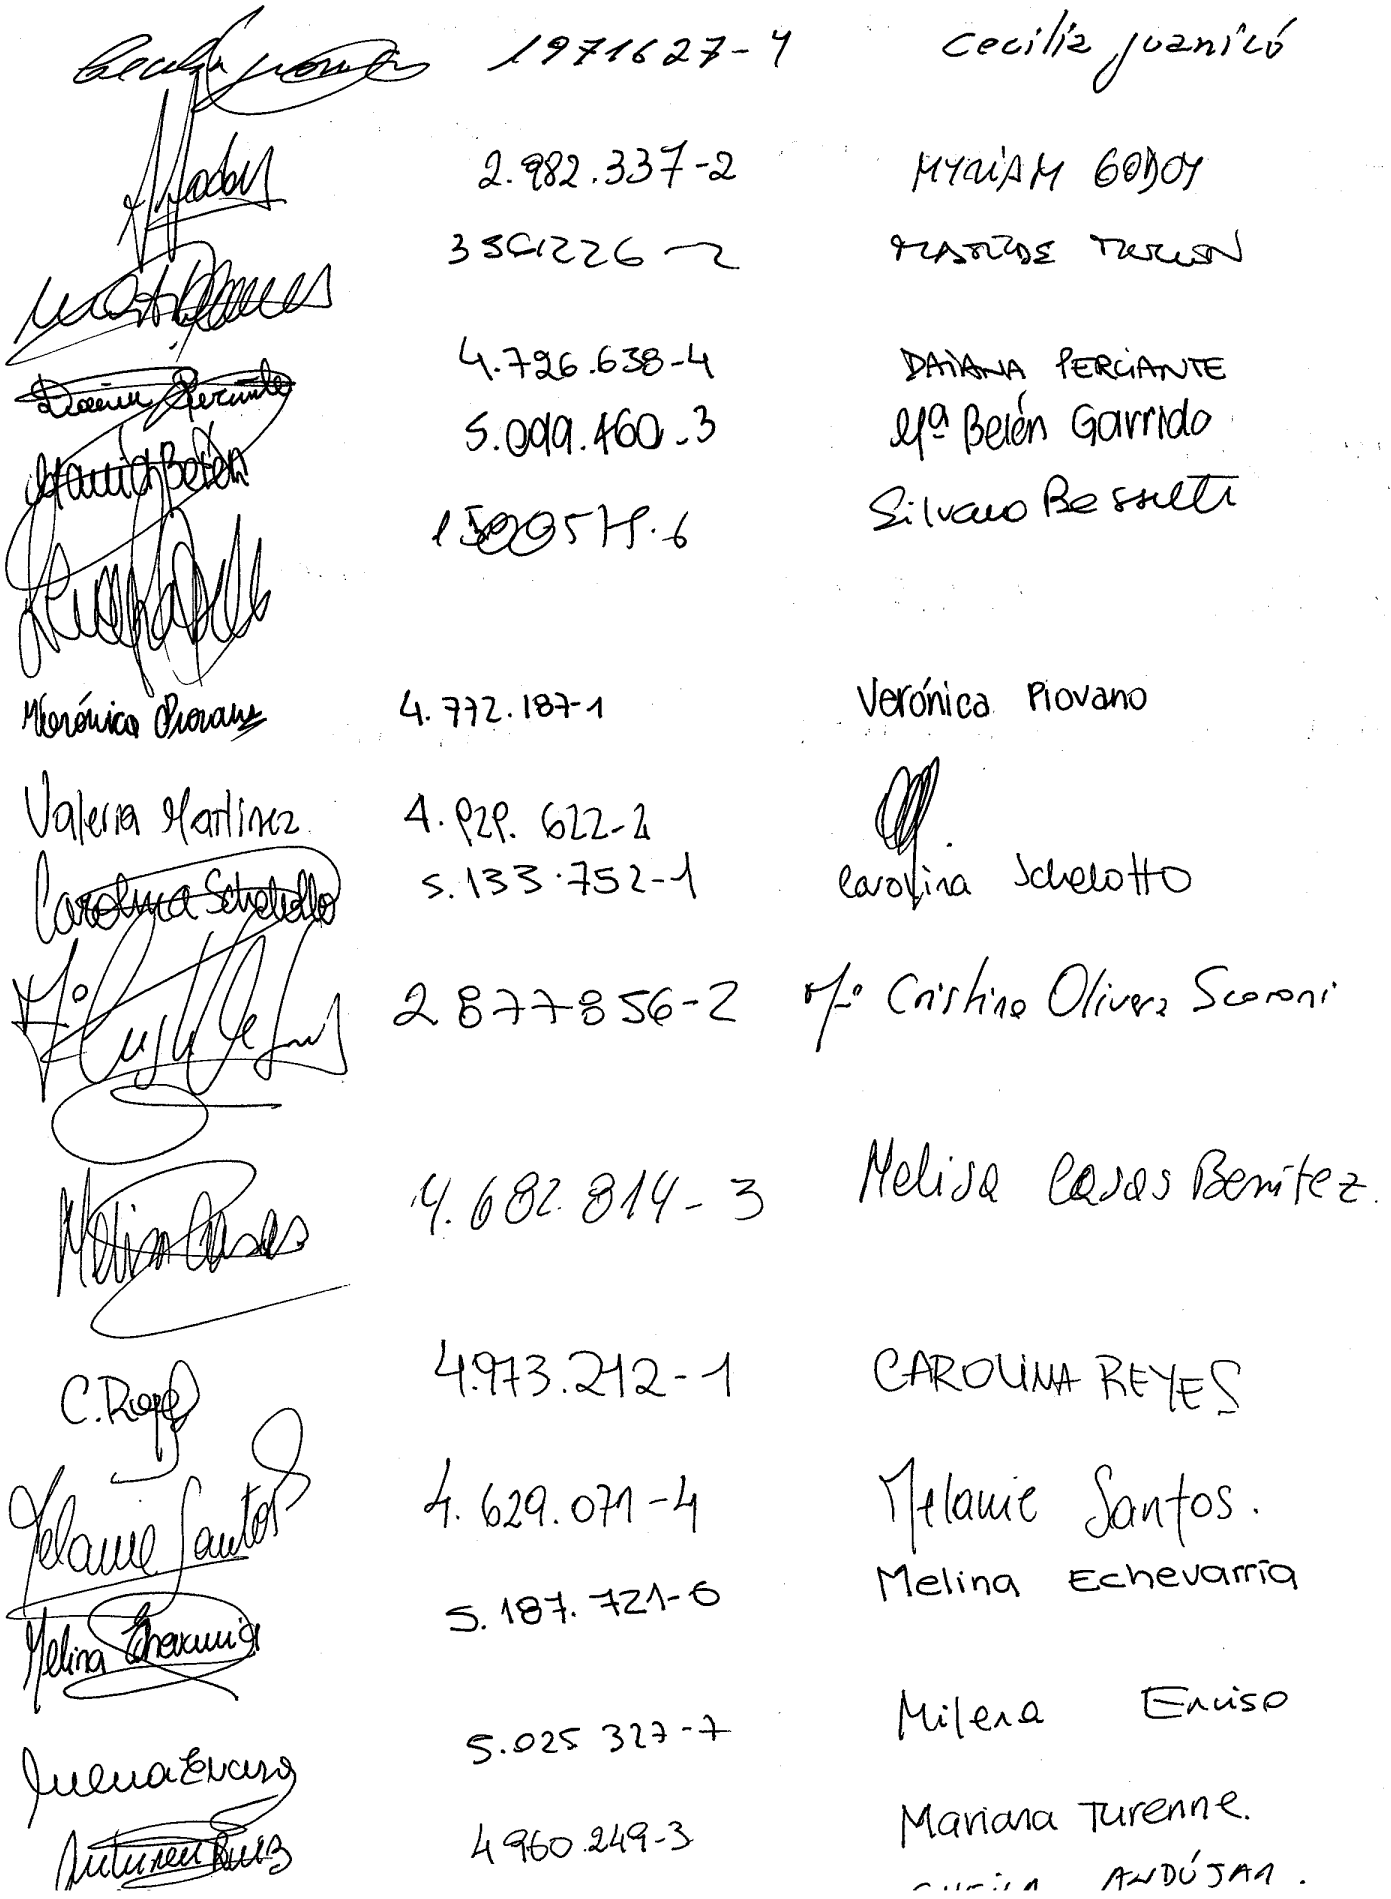 1971627-4 Cecilia Juanicó
2.982.337-2 MYRIAM GODOY
MATILDE
Daiana Perciante 4.726.638-4 DAIANA PERCIANTE
María Belén 5.099.460-3 Mª Belén Garrido
Silvana Bessetti
Verónica Piovano 4.772.187-1 Verónica Piovano
Valeria Martínez 4.929.622-2
Carolina Schelotto 5.133.752-1 Carolina Schelotto
2877856-2 Mª Cristina Olivera Scaroni
Melisa Casas 4.682.814-3 Melisa Casas Benítez.
C. Reyes 4.973.212-1 CAROLINA REYES
Melanie Santos 4.629.071-4 Melanie Santos.
Melina Echevarria 5.187.721-6 Melina Echevarria
Milena Enciso 5.025 327-7 Milena Enciso
4960.249-3 Mariana Turenne.
ANDÚJAR.